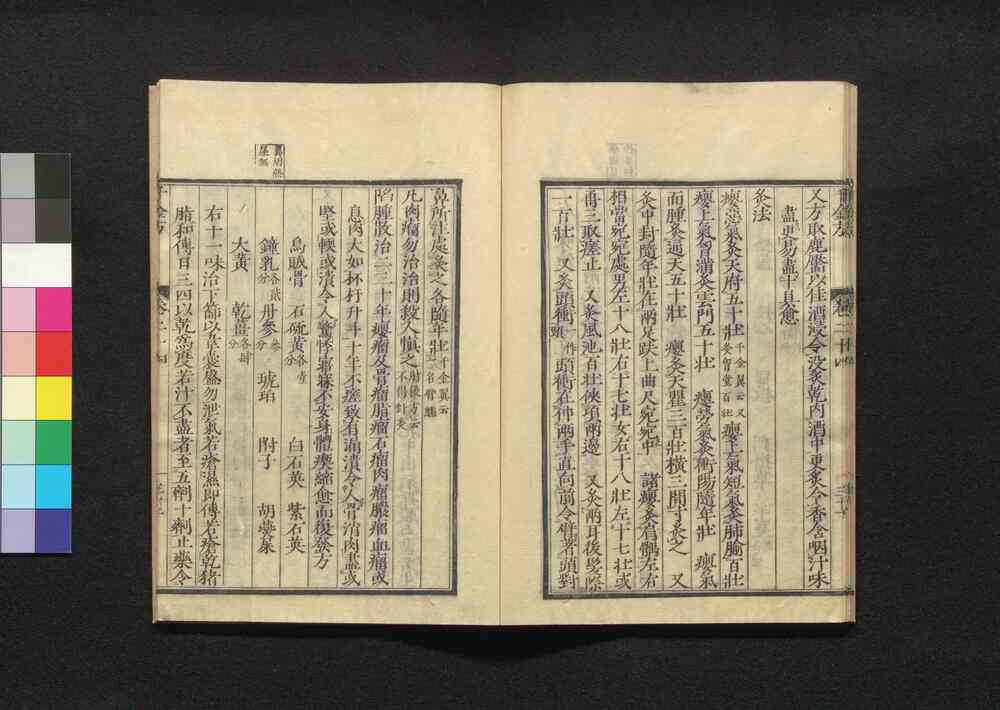 又方取鹿靨以佳酒浸令没炙乾内酒中更炙令香含嚥汁味
盡更易盡十具愈
灸法
癭惡氣灸天府五十壯千金翼云又灸胷堂百壯 癭上氣短氣灸肺腧百壯
癭上氣胷滿灸雲門五十壯 癭勞氣灸衝陽隨年壯 癭氣
面腫灸通天五十壯 癭灸天瞿三百壯橫三間寸灸之 又
灸中封隨年壯在兩足趺上曲尺宛宛中 諸癭灸肩髃左右
相當宛宛處男左十八壯右十七壯女右十八壯左十七壯或
再三取瘥止 又灸風池百壯俠項兩邊 又灸兩耳後髮際
一百壯 又灸頭衝一作頸頭衝在伸兩手直向前令臂著頭對
鼻所注處灸之各隨年壯千金翼云名臂臑
凡肉瘤勿治治則殺人愼之肘後方云不得針灸
陷腫散治二三十年癭瘤及骨瘤脂瘤石瘤肉瘤膿瘤血瘤或
息肉大如杯杅升斗十年不瘥致有漏潰令人骨消肉盡或
堅或輭或潰令人驚悸寤寐不安身體瘈縮愈而復發方
烏賊骨 石硫黃各壹分 白石英 紫石英
鐘乳各貳分 丹參叁分 琥珀 附子 胡燕屎
大黃 乾薑各肆分
右十一味治下篩以韋囊盛勿泄氣若瘡濕即傅若瘡乾猪
脂和傅日三四以乾爲度若汁不盡者至五劑十劑止藥令
卷二十四